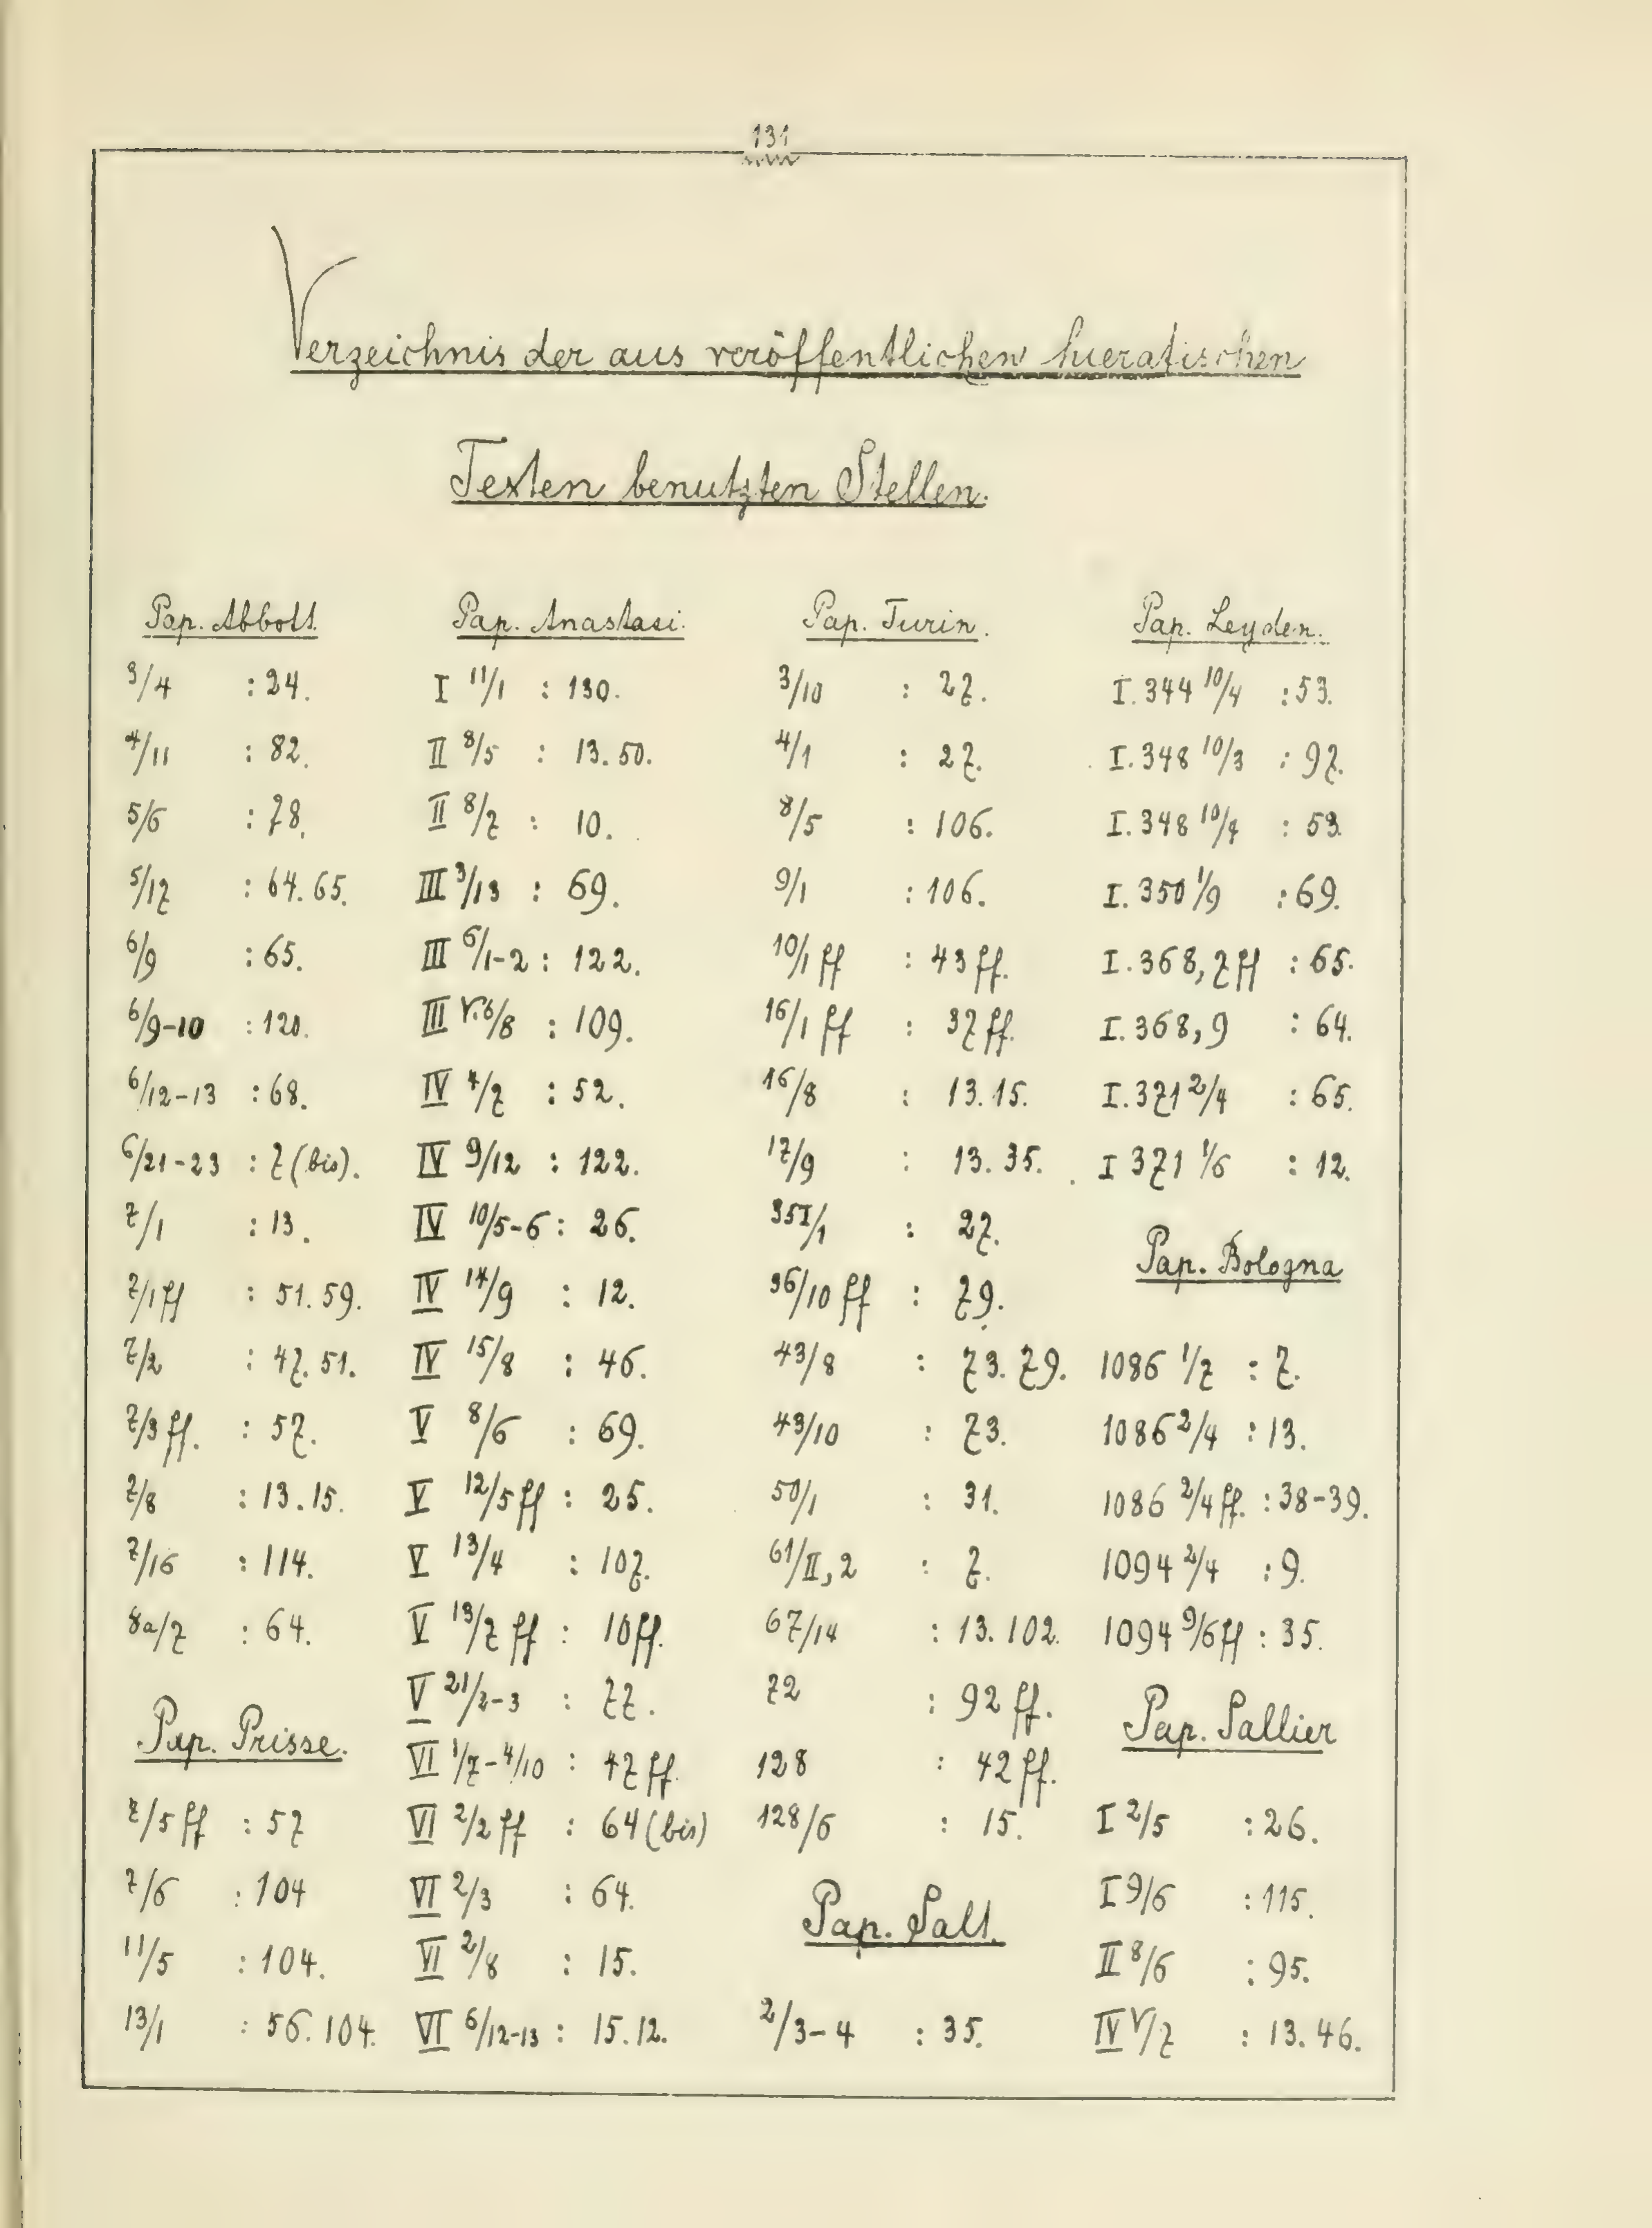 131
Verzeichnis der aus veröffentlichen hieratischen
Texten benutzten Stellen.
Pap. Abbott.
3/4 : 24.
4/11 : 82.
5/6 : 78.
5/17 : 64. 65.
6/9 : 65.
6/9-10 : 120.
6/12-13 : 68.
6/21-23 : 7 (bis).
7/1 : 13.
7/1 ff : 51. 59.
7/2 : 47. 51.
7/3 ff. : 57.
7/8 : 13. 15.
7/16 : 114.
8a/7 : 64.
Pap. Prisse.
7/5 ff : 57
7/6 : 104
11/5 : 104.
13/1 : 56. 104.
Pap. Anastasi.
I 11/1 : 130.
II 8/5 : 13. 50.
II 8/7 : 10.
III 3/13 : 69.
III 6/1-2 : 122.
III V. 6/8 : 109.
IV 4/7 : 52.
IV 9/12 : 122.
IV 10/5-6 : 26.
IV 14/9 : 12.
IV 15/8 : 46.
V 8/6 : 69.
V 12/5 ff : 25.
V 13/4 : 107.
V 13/7 ff : 10 ff.
V 21/2-3 : 77.
VI 1/7-4/10 : 47 ff.
VI 2/2 ff : 64 (bis)
VI 2/3 : 64.
VI 2/8 : 15.
VI 6/12-13 : 15. 12.
Pap. Turin.
3/10 : 27.
4/1 : 27.
8/5 : 106.
9/1 : 106.
10/1 ff : 43 ff.
16/1 ff : 37 ff.
16/8 : 13. 15.
17/9 : 13. 35.
35I/1 : 27.
36/10 ff : 79.
43/8 : 73. 79.
43/10 : 73.
50/1 : 31.
61/II, 2 : 7.
67/14 : 13. 102.
72 : 92 ff.
128 : 42 ff.
128/6 : 15.
Pap. Salt.
2/3-4 : 35.
Pap. Leyden.
I. 344 10/4 : 53.
I. 348 10/3 : 97.
I. 348 10/4 : 53.
I. 350 1/9 : 69.
I. 368, 7 ff : 65.
I. 368, 9 : 64.
I. 371 2/4 : 65.
I 371 1/6 : 12.
Pap. Bologna
1086 1/7 : 7.
1086 2/4 : 13.
1086 2/4 ff. : 38-39.
1094 2/4 : 9.
1094 9/6 ff : 35.
Pap. Sallier
I 2/5 : 26.
I 9/6 : 115.
II 8/6 : 95.
IV V/7 : 13. 46.